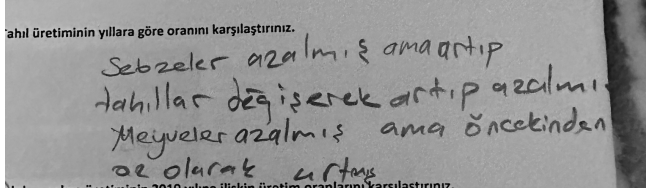 ahıl üretiminin yıllara göre oranını karşılaştırınız.
Sebzeler azalmış ama artıp
tahıllar değişerek artıp azalmış
Meyveler azalmış ama öncekinden
az olarak artmış
üretiminin 2019 yılına ilişkin üretim oranlarını karşılaştırınız.